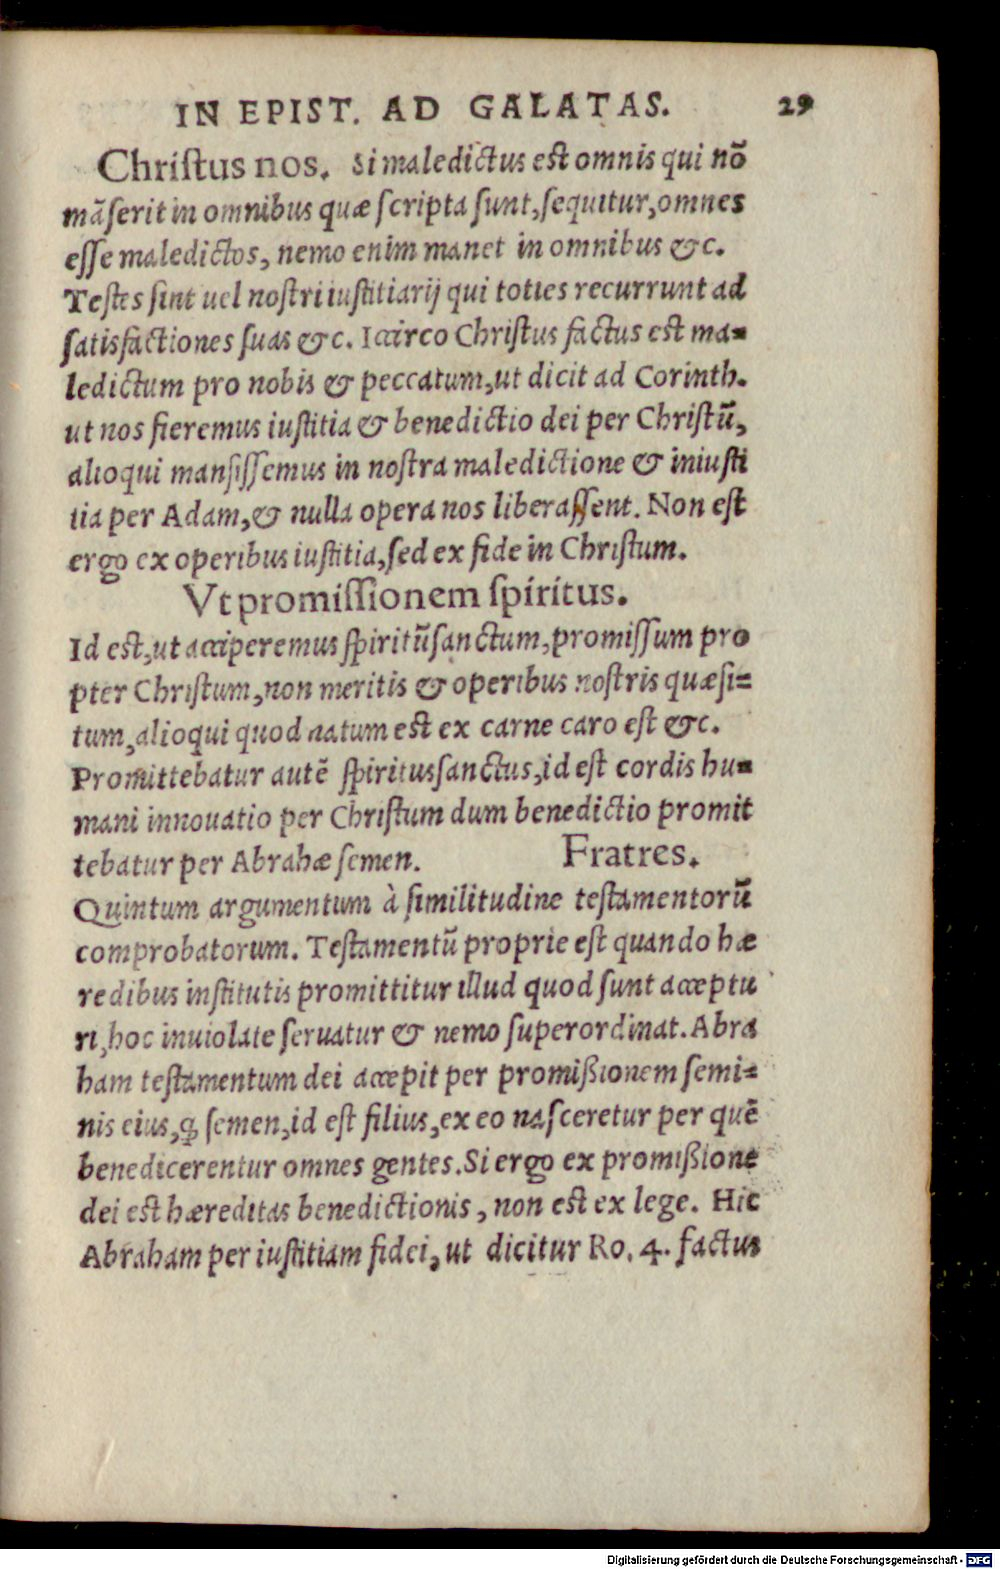 IN EPIST. AD GALATAS. 29
Chriſtus nos. Si maledictus est omnis qui nō
māſerit in omnibus quæ ſcripta ſunt,ſequitur,omnes
eſſe maledictos, nemo enim manet in omnibus &c.
Testes ſint uel noſtri iuſtitiarij qui toties recurrunt ad
ſatisfactiones ſuas &c. Iccirco Chriſtus factus est ma-
ledictum pro nobis & peccatum,ut dicit ad Corinth.
ut nos fieremus iuſtitia & benedictio dei per Chriſtū,
alioqui manſiſſemus in noſtra maledictione & iniuſti
tia per Adam,& nulla opera nos liberaſſent. Non eſt
ergo ex operibus iuſtitia,ſed ex fide in Chriſtum.
Vt promiſſionem ſpiritus.
Id est,ut acciperemus ſpiritūſanctum,promiſſum pro
pter Chriſtum,non meritis & operibus noſtris quæſi-
tum,alioqui quod natum est ex carne caro eſt &c.
Promittebatur autē ſpiritusſanctus,id eſt cordis hu-
mani innouatio per Chriſtum dum benedictio promit
tebatur per Abrahæ ſemen. Fratres.
Quintum argumentum à ſimilitudine teſtamentorū
comprobatorum. Teſtamentū proprie est quando hæ
redibus inſtitutis promittitur illud quod ſunt acceptu
ri,hoc inuiolate ſeruatur & nemo ſuperordinat. Abra
ham teſtamentum dei accepit per promißionem ſemi-
nis eius,ꝙ ſemen,id eſt filius,ex eo naſceretur per quē
benedicerentur omnes gentes. Si ergo ex promißione
dei est hæreditas benedictionis, non est ex lege. Hic
Abraham per iuſtitiam fidei, ut dicitur Ro. 4. factus
Digitalisierung gefördert durch die Deutsche Forschungsgemeinschaft - DFG